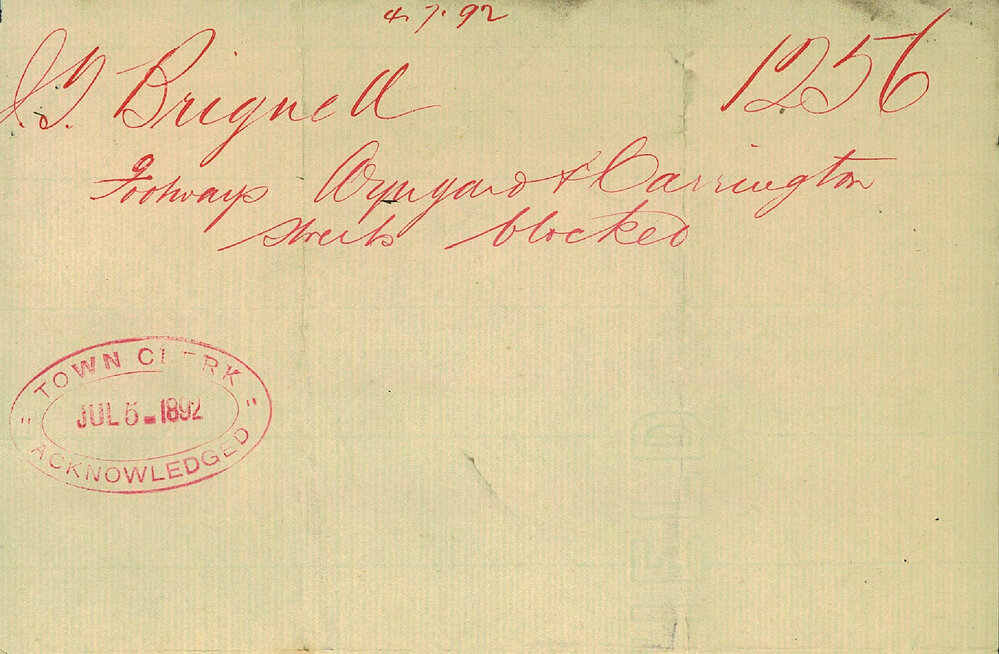 4.7.92
J. T. Brignell
1256
Footways Wyngard & Carrington
streets blocked
TOWN CLERK
JUL 5-1892
ACKNOWLEDGED